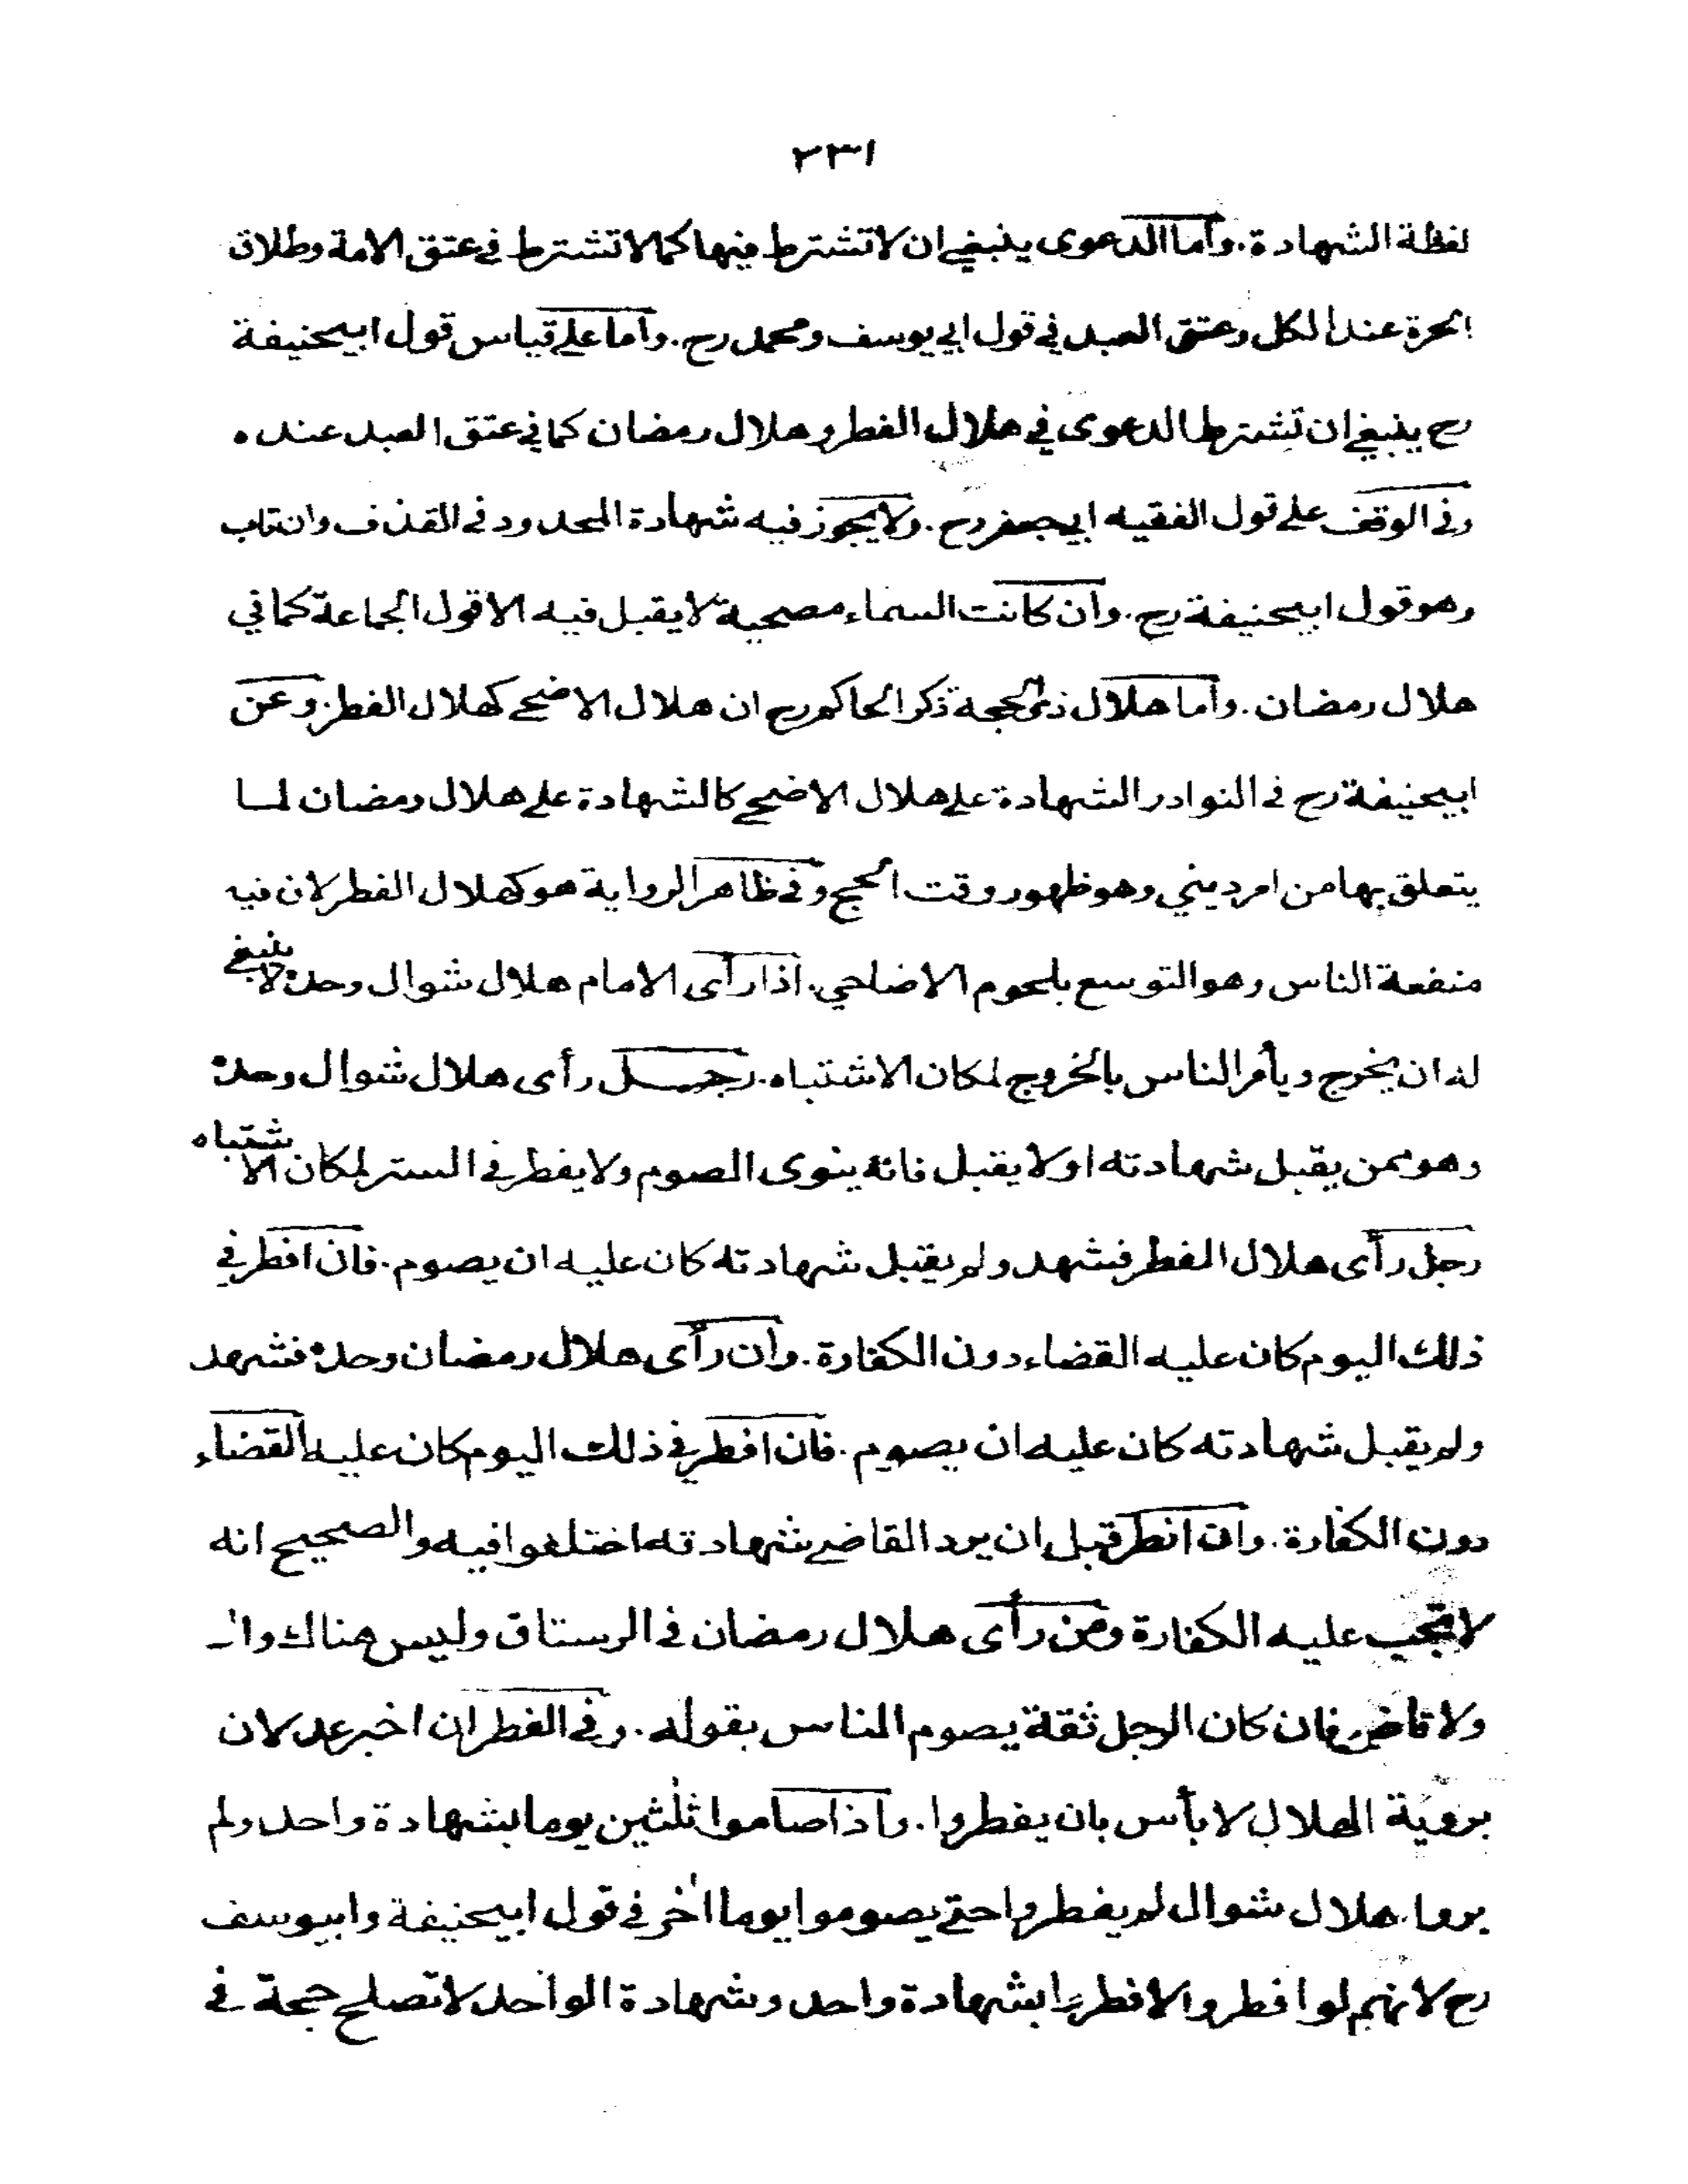 ٢٣١
لفظة الشهادة. وأما الدعوى ينبغي ان لا تشترط فيها كما لا تشترط في عتق الامة وطلاق
الحرة عند الكل وعتق العبد في قول ابي يوسف ومحمد رح. وأما على قياس قول ابيحنيفة
رح ينبغي ان تشترط الدعوى في هلال الفطر وهلال رمضان كما في عتق العبد عنده
وفي الوقف على قول الفقيه ابي جعفر رح. ولا يجوز فيه شهادة المحدود في القذف وان تاب
وهو قول ابيحنيفة رح. وان كانت السماء مصحية لا يقبل فيه الا قول الجماعة كما في
هلال رمضان. وأما هلال ذي الحجة ذكر الحاكم رح ان هلال الاضحى كهلال الفطر. وعن
ابيحنيفة رح في النوادر الشهادة على هلال الاضحى كالشهادة على هلال رمضان لما
يتعلق بها من امر ديني وهو ظهور وقت الحج وفي ظاهر الرواية هو كهلال الفطر لان فيه
منفعة الناس وهو التوسع بلحوم الاضاحي. اذا رأى الامام هلال شوال وحده لا ينبغي
له ان يخرج ويأمر الناس بالخروج لمكان الاشتباه. رجل رأى هلال شوال وحده
وهو ممن يقبل شهادته او لا يقبل فانه ينوى الصوم ولا يفطر في الستر لمكان الاشتباه
رجل رأى هلال الفطر فشهد ولم يقبل شهادته كان عليه ان يصوم. فان افطر في
ذلك اليوم كان عليه القضاء دون الكفارة. وان رأى هلال رمضان وحده فشهد
ولم يقبل شهادته كان عليه ان يصوم. فان افطر في ذلك اليوم كان عليه القضاء
دون الكفارة. وان افطر قبل ان يرد القاضي شهادته اختلفوا فيه والصحيح انه
لا تجب عليه الكفارة ومن رأى هلال رمضان في الرستاق وليس هناك وال
ولا قاض فان كان الرجل ثقة يصوم الناس بقوله. وفي الفطر ان اخبر عدلان
برؤية الهلال لا بأس بان يفطروا. واذا صاموا ثلثين يوما بشهادة واحد ولم
يروا هلال شوال لم يفطروا حتى يصوموا يوما اٰخر في قول ابيحنيفة وابيوسف
رح لانهم لو افطروا لافطروا بشهادة واحد وشهادة الواحد لا تصلح حجة في